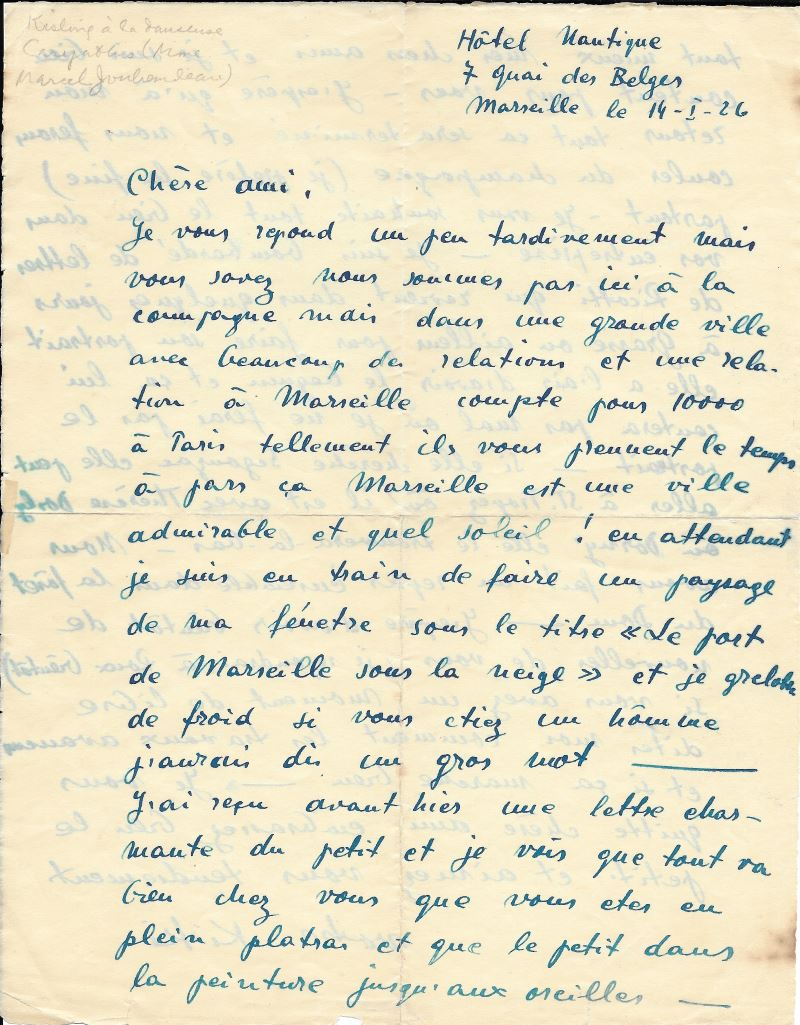 Kisling à la danseuse
Caryathis (Mme
Marcel Jouhandeau)
Hôtel Nautique
7 Quai des Belges
Marseille le 14-I-26
Chère ami,
Je vous repond un peu tardivement mais
vous savez nous sommes pas ici à la
compagne mais dans une grande ville
avec beaucoup de relations et une rela-
tion à Marseille compte pour 10000
à Paris tellement ils vous prennent le temps
à pars ça Marseille est une ville
admirable et quel soleil ! en attendant
je suis en train de faire un paysage
de ma fénetre sous le titre «Le port
de Marseille sous la neige» et je grelote
de froid si vous etiez un hômme
j'aurais dis un gros mot —
J'ai reçu avant hier une lettre char-
mante du petit et je vois que tout va
bien chez vous que vous etes en
plein platras et que le petit dans
la peinture jusqu'aux oreilles —